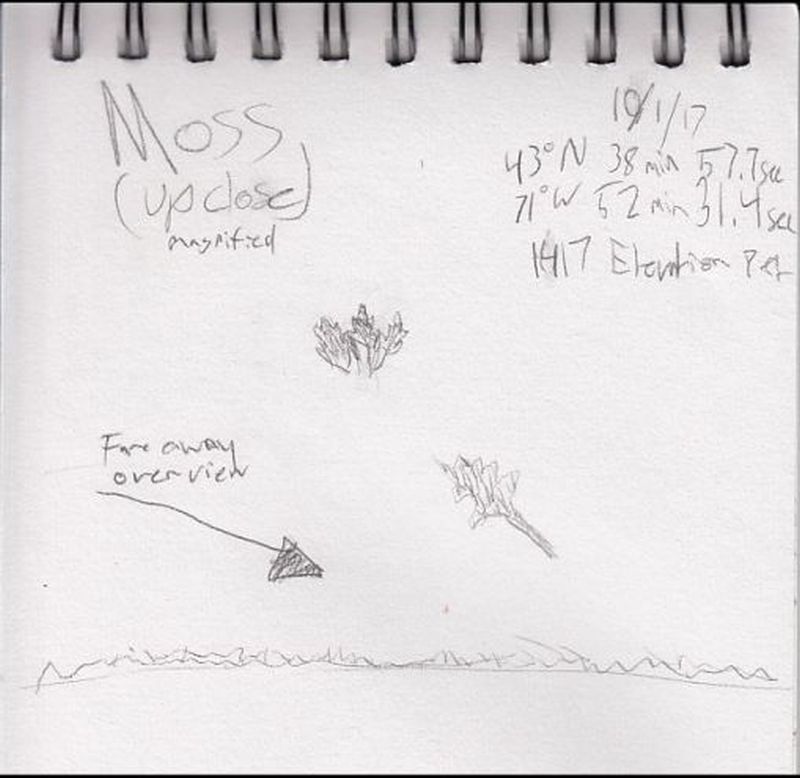 Moss
(up close)
magnified
10/1/17
43°N 38 min 57.7sec
71°W 52 min 31.4sec
1417 Elevation
Fare away
overview